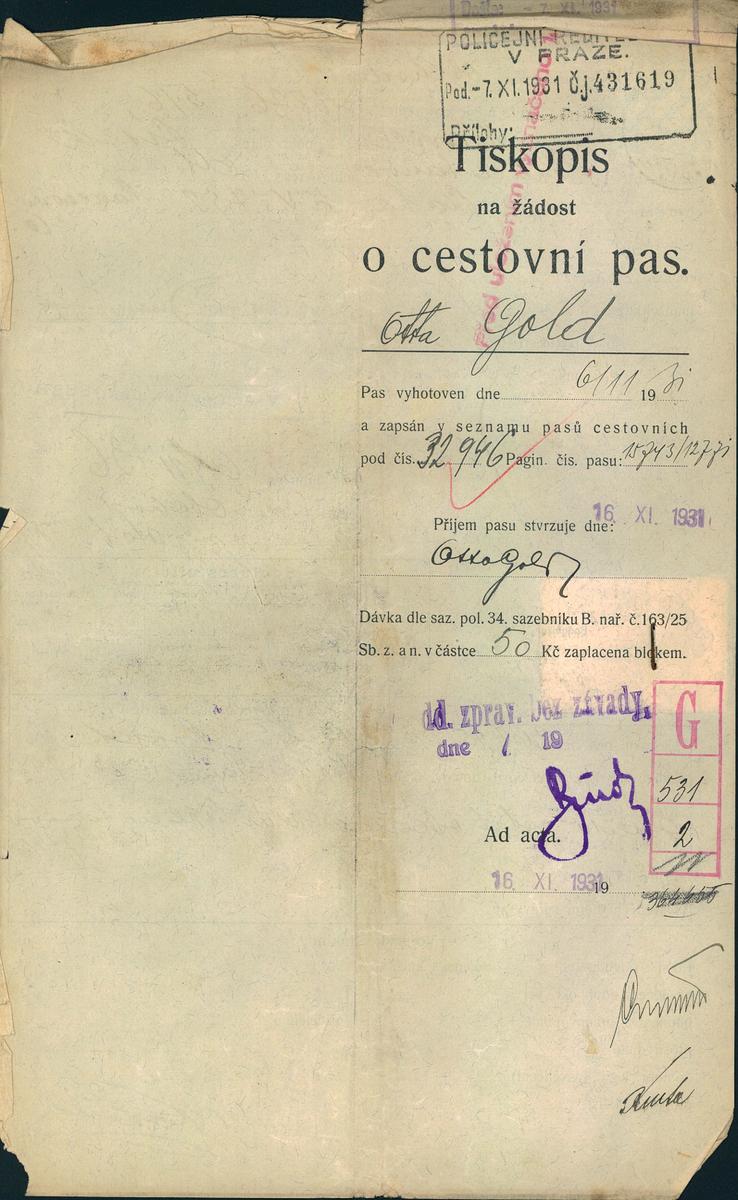 Došlo - 7. XI. 1931
POLICEJNÍ ŘEDITEL
V PRAZE.
Pod. - 7. XI. 1931 Čj. 431619
Přílohy:
Tiskopis
na žádost
o cestovní pas.
Otta Gold
Pas vyhotoven dne 6/11 1931
a zapsán v seznamu pasů cestovních
pod čís. 32946 Pagin. čís. pasu:
16. XI. 1931
Příjem pasu stvrzuje dne:
Otto Gold
Dávka dle saz. pol. 34. sazebníku B. nař. č. 163/25
Sb. z. a n. v částce 50 Kč zaplacena blokem.
dd. zprav. bez závady,
dne 19
G
531
2
Ad acta.
16. XI. 1931 19